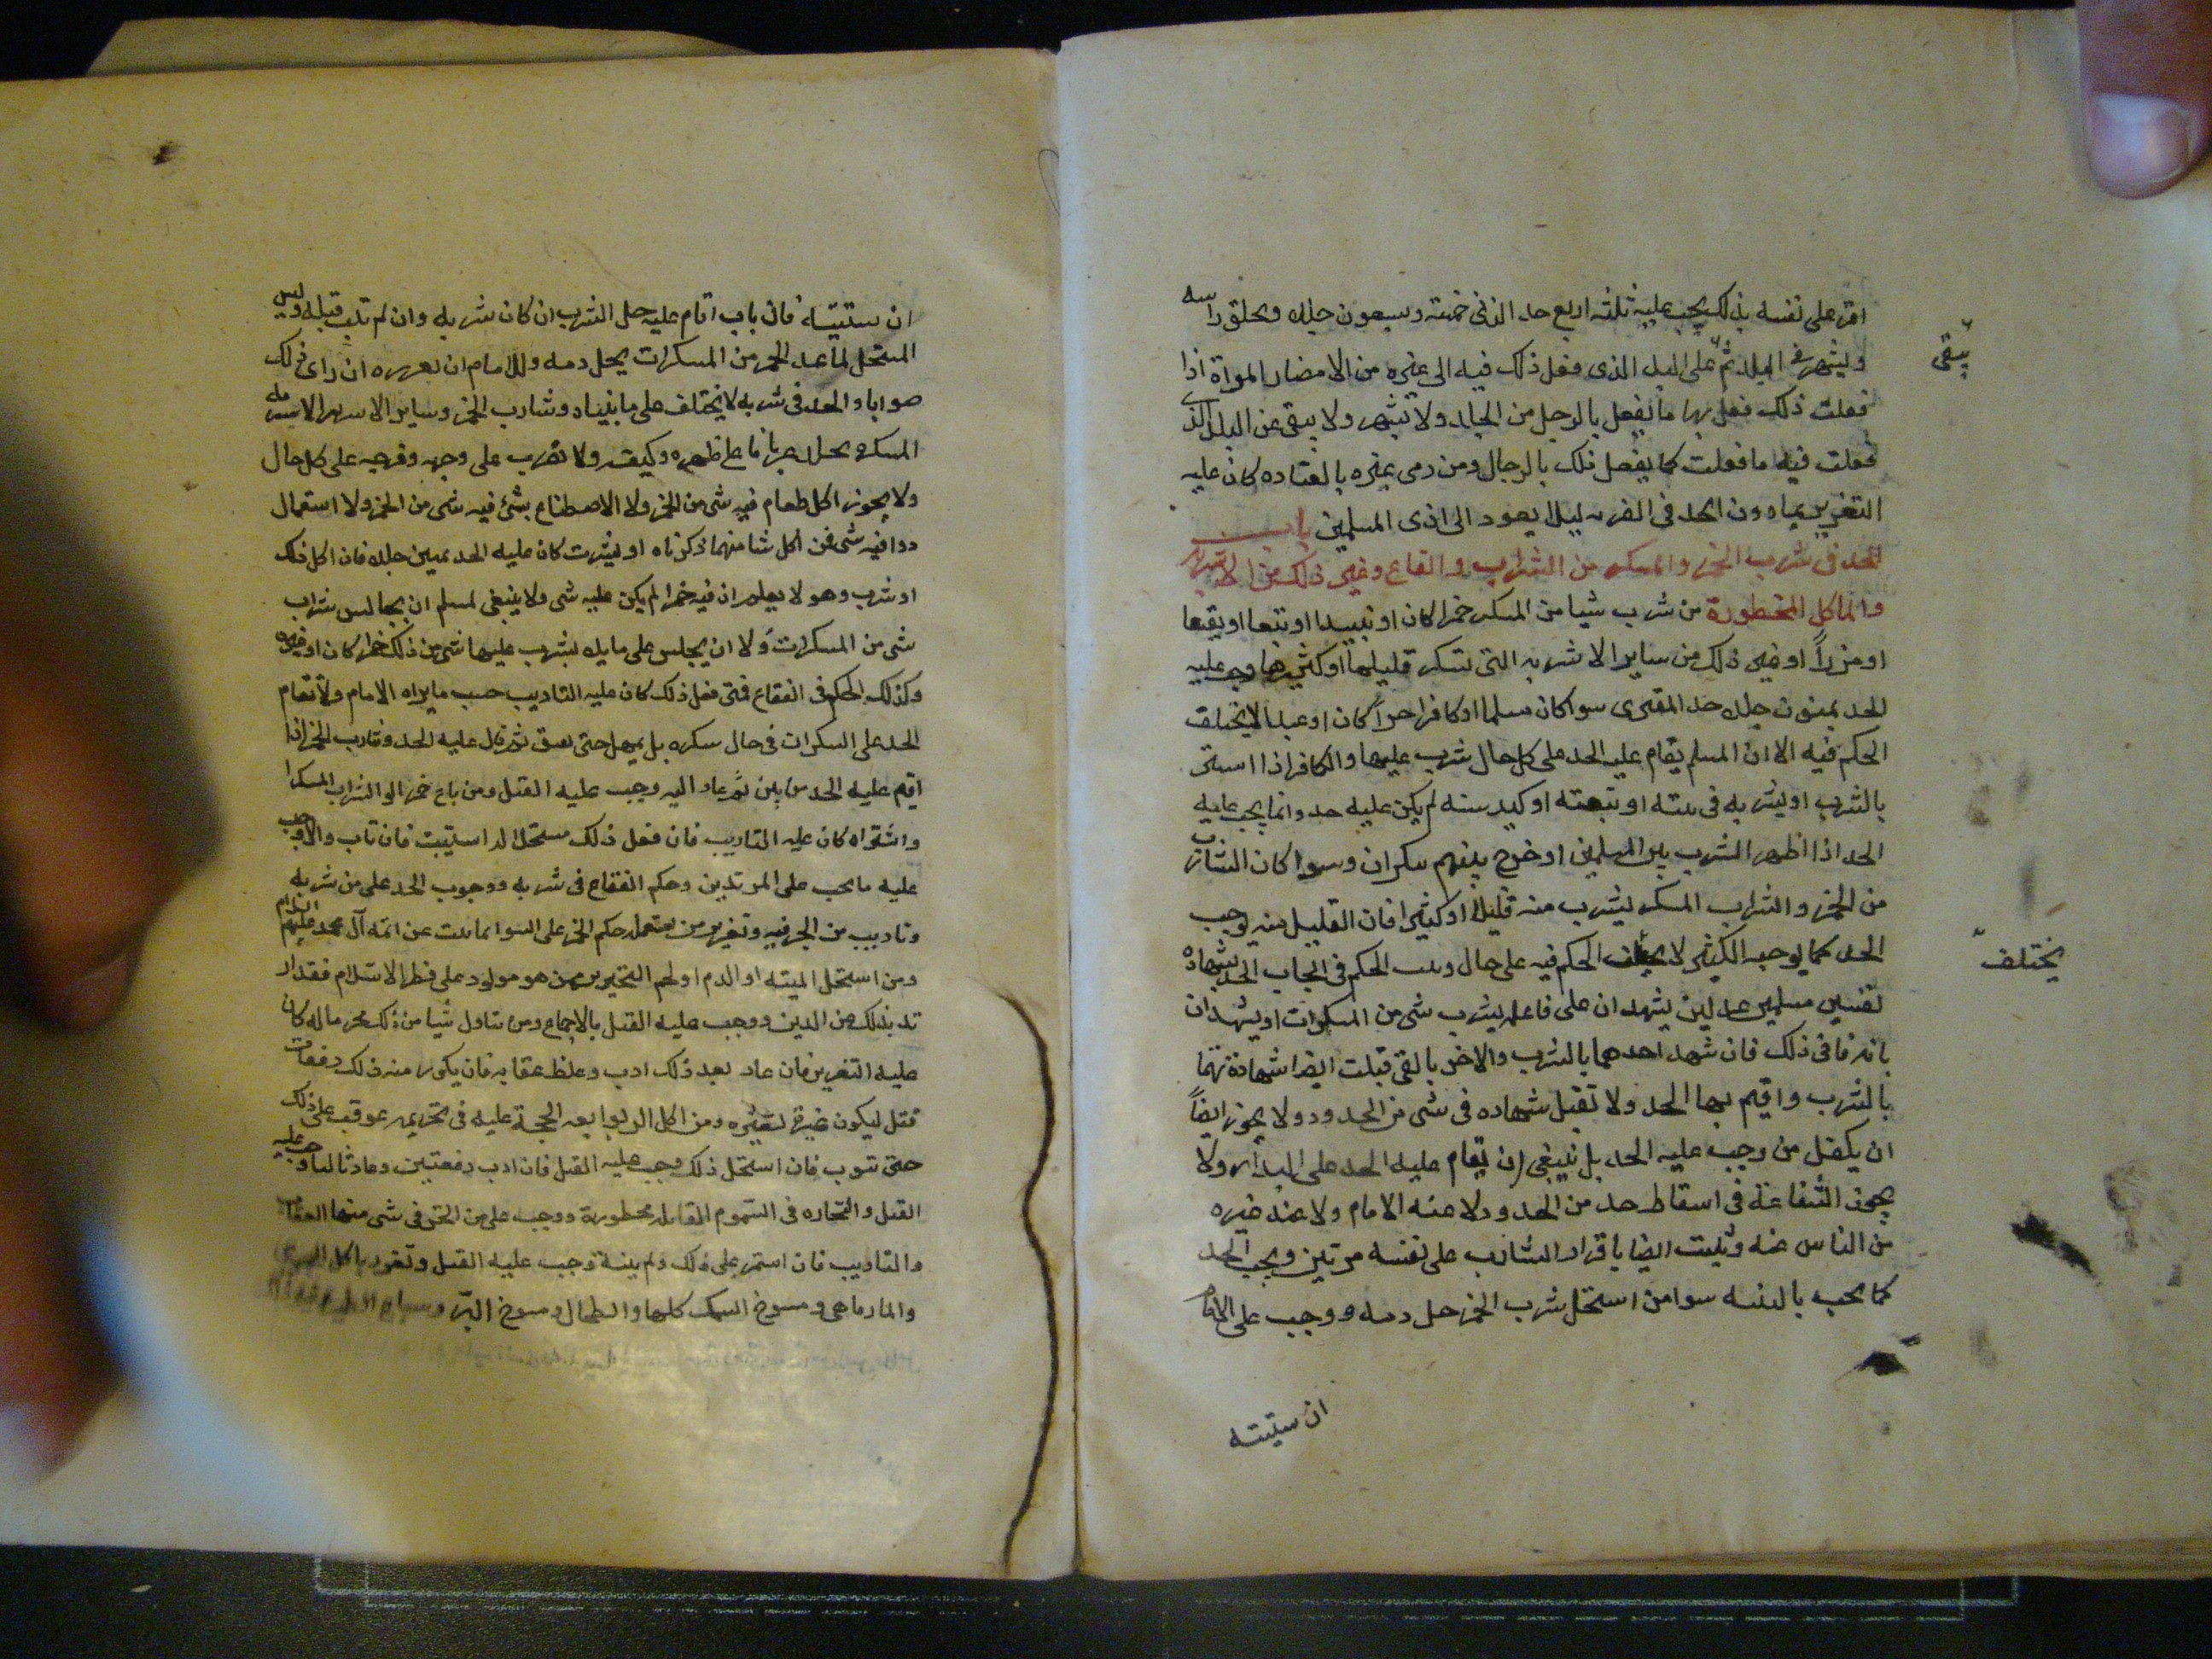 اقر على نفسه بذلك يجب عليه ثلثه اربع حد الزنى خمسة وسبعون جلده ويحلق راسه
ويشهر فى البلد ثم على البلد الذى فعل ذلك فيه الى غيره من الامصار المراة اذا
ينفى
فعلت ذلك فعل بها ما يفعل بالرجل من الجلد ولا تشهر ولا ينفى عن البلد الذى
فعلت فيه ما فعلت كما يفعل ذلك بالرجال ومن رمى غيره بالقياده كان عليه
التعزير بما دون الحد فى الفريه ليلا يعود الى اذى المسلمين باب
الحد فى شرب الخمر والمسكر من الشراب والفقاع وغير ذلك من الاشربه
والماكل المحظورة من شرب شيا من المسكر خمرا كان او نبيذا او بتعا او نقيعا
او مزراً او غير ذلك من ساير الاشربه التى تسكر قليلها او كثيرها وجب عليه
الحد ثمنون جلده حد المفترى سوا كان مسلما او كافرا حراً كان او عبدا لا يختلف
الحكم فيه الا ان المسلم يقام عليه الحد على كل حال شرب عليها والكافر اذا استتر
بالشرب او شربه فى بيته او بيعته او كنيسته لم يكن عليه حد وانما يجب عليه
الحد اذا اظهر الشرب بين المسلمين او خرج بينهم سكران وسوا كان الشارب
من الخمر والشراب المسكر يشرب منه قليلاً او كثيرا فان القليل منه يوجب
الحد كما يوجبه الكثير لا يختلف الحكم فيه على حال ويثبت الحكم فى ايجاب الحد بشهاده
يختلف
نفسين مسلمين عدلين يشهدان على فاعله بشرب شى من المسكرات او يشهدان
بانه قا فى ذلك فان شهد احدهما بالشرب والاخر بالقى قبلت ايضا شهادتهما
بالشرب واقيم بها الحد ولا تقبل شهاده فى شى من الحدود ولا يجوز ايضاً
ان يكفل من وجب عليه الحد بل ينبغى ان يقام عليه الحد على البدار ولا
يجوز الشفاعة فى اسقاط حد من الحدود لا عند الامام ولا عند غيره
من الناس عنه ويثبت ايضا باقرار الشارب على نفسه مرتين ويجب الحد
كما يجب بالبينه سوا من استحل شرب الخمر حل دمه ووجب على الامام
ان ستيبه
ان ستتيبه فان باب اقام عليه حل الشرب ان كان شربه وان لم تلب قبله وليس
المستحل لما عدا الخمر من المسكرات يحل دمه وللامام ان يعزره ان راى ذلك
صوابا والحد فى شربه لا يختلف على ما بيناه وشارب الخمر وساير الاشربه
المسكره يجلد عريانا على ظهره وكتفه ولا يضرب على وجهه وفرجه على كل حال
ولا يجوز اكل طعام فيه شى من الخمر ولا الاصطباغ بشئ فيه شى من الخمر ولا استعمال
دوا فيه شى فمن اكل شيا مما ذكرناه او شرب كان عليه الحد ثمنين جلده فان اكل ذلك
او شرب وهو لا يعلم ان فيه خمرا لم يكن عليه شى ولا ينبغى لمسلم ان يجالس شراب
شى من المسكرات ولا ان يجلس على مايده يشرب عليها شى من ذلك خمرا كان او غيره
وكذلك الحكم فى الفقاع فمتى فعل ذلك كان عليه التاديب حسب ما يراه الامام ولا تقام
الحد على السكران فى حال سكره بل يمهل حتى يفيق ثم يقام عليه الحد وشارب الخمر اذا
اقيم عليه الحد مرتين ثم عاد اليه وجب عليه القتل ومن باع خمرا او الشراب المسكر
واشتراه كان عليه التاديب فان فعل ذلك مستحلا له استتيب فان تاب والا وجب
عليه ما يجب على المرتدين وحكم الفقاع فى شربه ووجوب الحد على من شربه
وتاديب من اتجر فيه وتعزير من يستعمله حكم الخمر على السوا بما ثبت عن ائمة آل محمد عليهم السلام
ومن استحل الميته او الدم او لحم الخنزير ممن هو مولود على فطرة الاسلام فقد ار
تد بذلك عن الدين ووجب عليه القتل بالاجماع ومن تناول شيا من ذلك محرما له كان
عليه التعزير فان عاد بعد ذلك ادب وغلظ عقابه فان يكرر منه ذلك دفعات
قتل ليكون عبرة لغيره ومن اكل الربوا بعد الحجة عليه فى تحريمه عوقب على ذلك
حتى يتوب فان استحل ذلك وجب عليه القتل فان ادب دفعتين وعاد ثالثا وجب عليه
القتل والتجاره فى السموم القاتله محظورة ووجب على من اتجر فى شى منها العقاب
والتاديب فان استمر على ذلك ولم ينته وجب عليه القتل ويعزر باكل الجرى
والمارماهى ومسوخ السمك كلها والطحال ومسوخ البر وسباع الطير